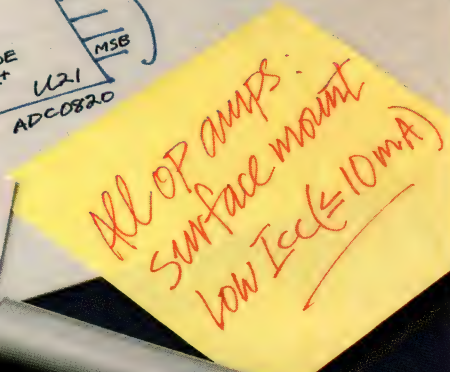 MSB
U21
ADC0820
All OP amps:
surface mount
Low Icc (≤ 10mA)